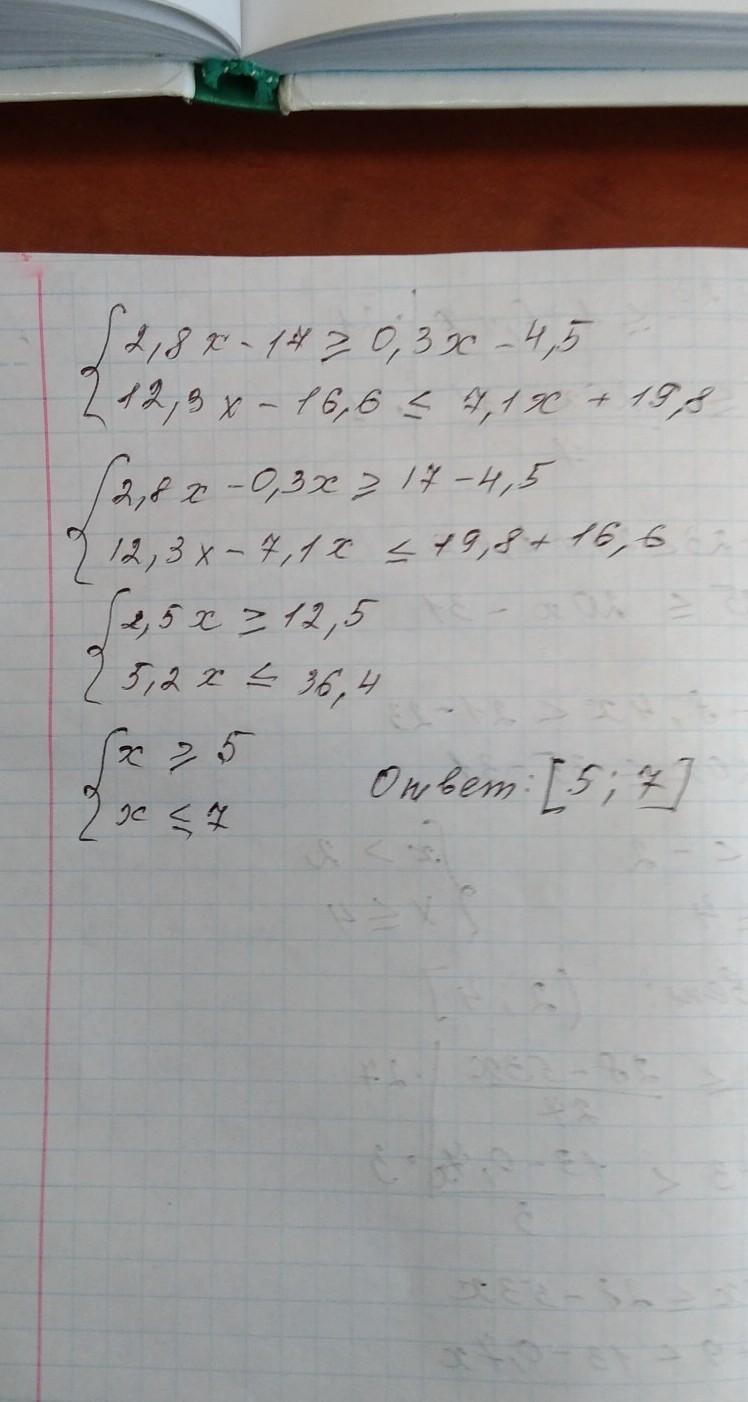 2,8x - 17 ≥ 0,3x - 4,5
12,3x - 16,6 ≤ 7,1x + 19,8
2,8x - 0,3x ≥ 17 - 4,5
12,3x - 7,1x ≤ 19,8 + 16,6
2,5x ≥ 12,5
5,2x ≤ 36,4
x ≥ 5
x ≤ 7 Ответ: [5; 7]